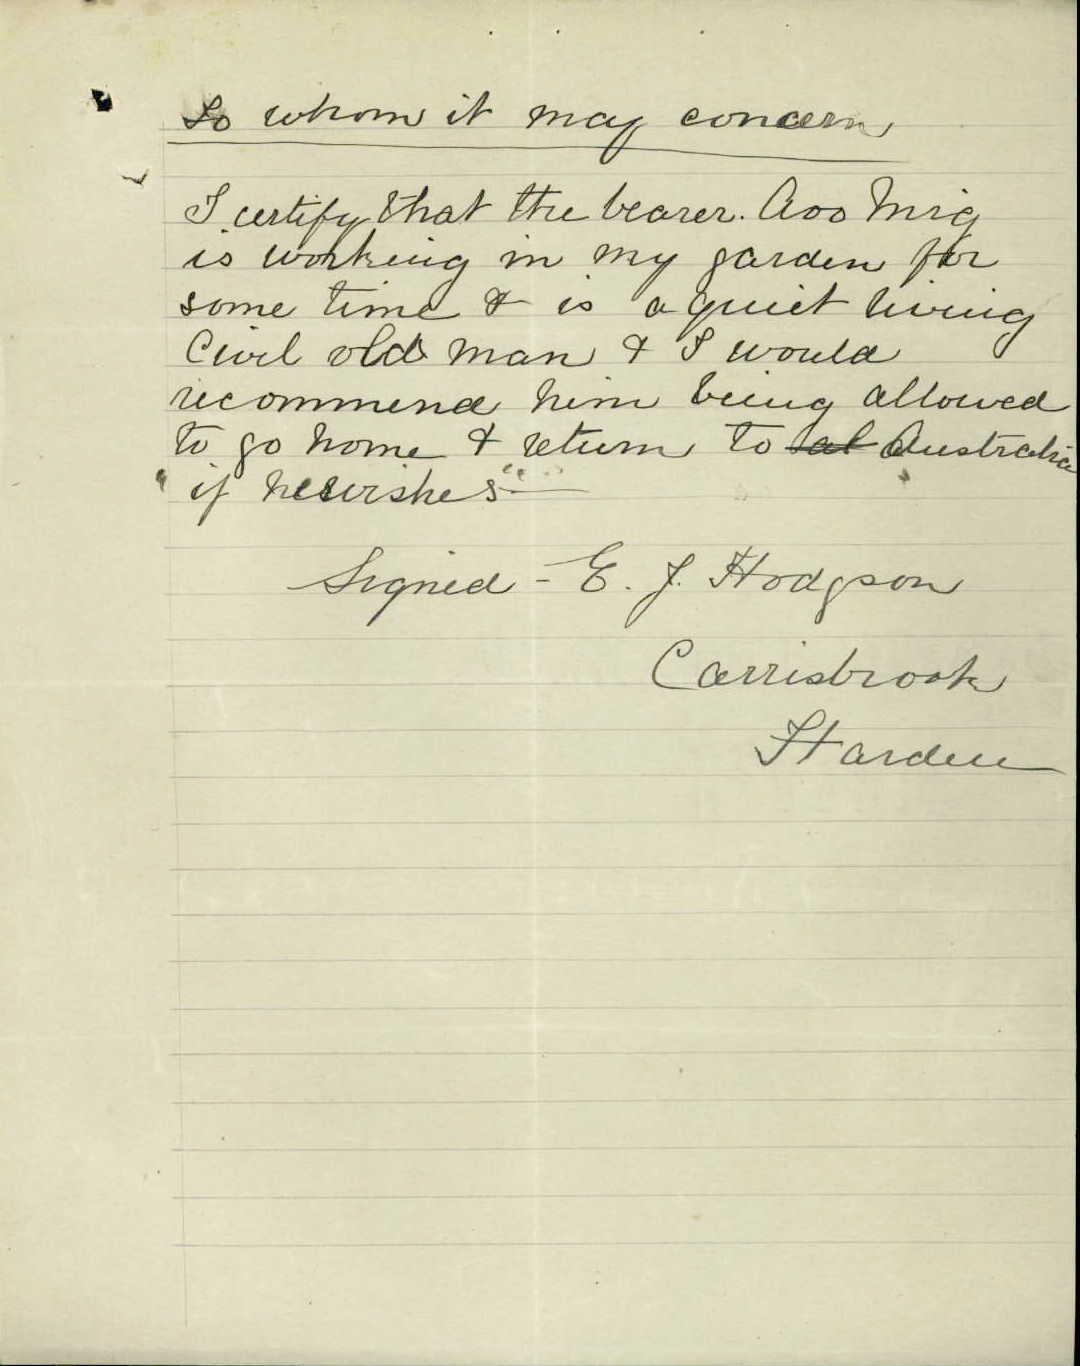 To whom it may concern
I certify that the bearer. Aoo Mig
is working in my garden for
some time & is a quiet living
Civil old man & I would
recommend him being allowed
to go home & return to al Australia
if he wishes
Signed - E. J. Hodgson
Carrisbrook
Harden